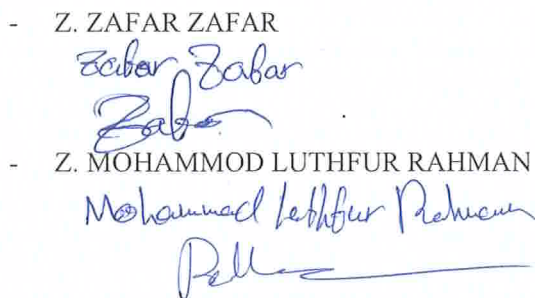 - Z. ZAFAR ZAFAR
Zafar Zafar
Zafar
- Z. MOHAMMOD LUTHFUR RAHMAN
Mohammod Luthfur Rahman